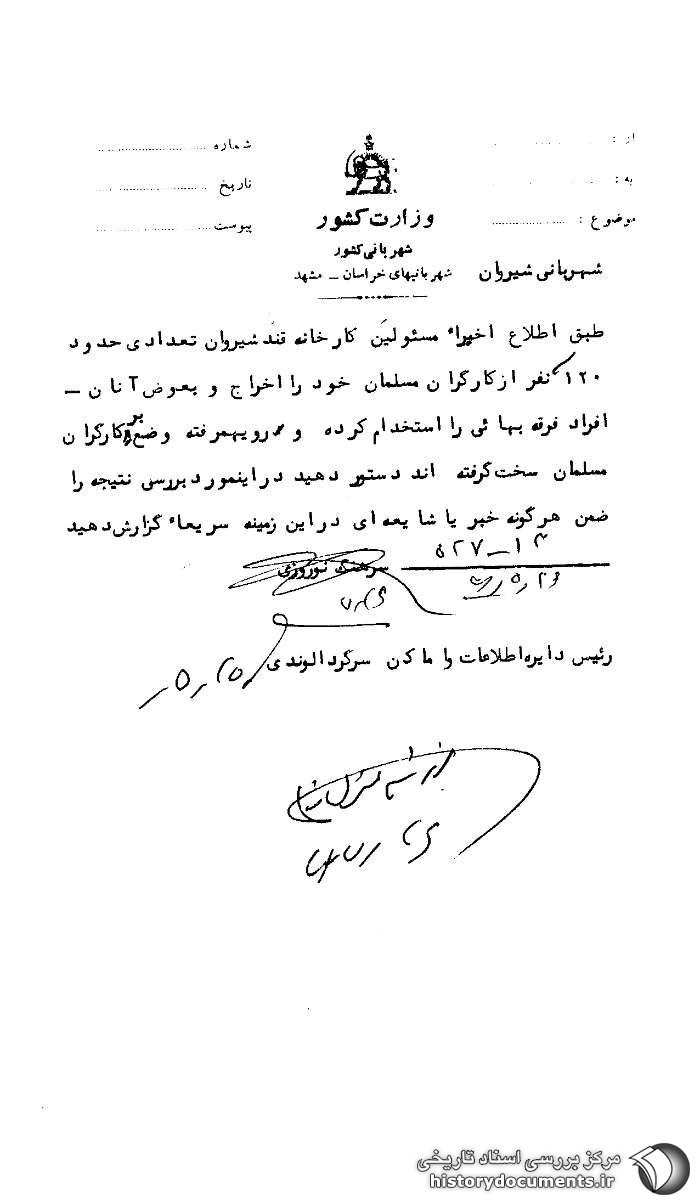 از :
شماره
به :
تاریخ
وزارت کشور
موضوع :
پیوست
شهربانی کشور
شهربانیهای خراسان ـ مشهد
شهربانی شیروان
طبق اطلاع اخیراً مسئولین کارخانه قند شیروان تعدادی حدود
۱۲۰ نفر از کارگران مسلمان خود را اخراج و بعوض آنان ـ
افراد فرقه بهائی را استخدام کرده و رویهمرفته وضع بر کارگران
مسلمان سخت گرفته اند دستور دهید در اینمورد بررسی نتیجه را
ضمن هرگونه خبر یا شایعه ای در این زمینه سریعاً گزارش دهید
سرهنگ نوروزی
رئیس دایره اطلاعات و اماکن سرگرد الوندی
مرکز بررسی اسناد تاریخی
historydocuments.ir